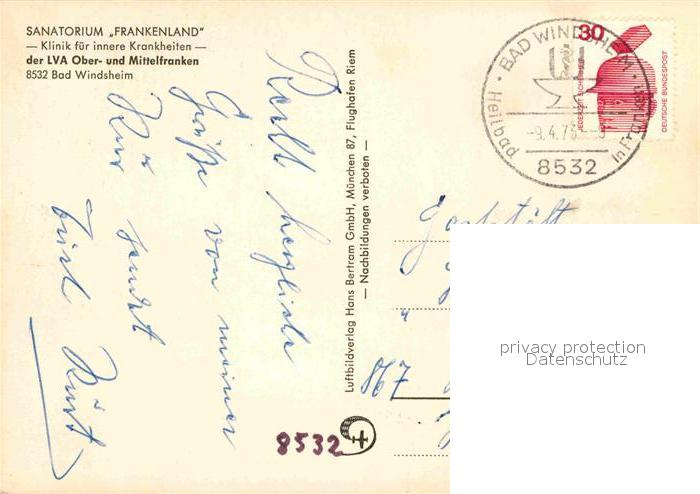 SANATORIUM „FRANKENLAND"
— Klinik für innere Krankheiten —
der LVA Ober- und Mittelfranken
8532 Bad Windsheim
Recht herzliche
Grüße von meiner
Kur sendt
Luftbildverlag Hans Bertram GmbH, München 87, Flughafen Riem
— Nachbildungen verboten —
8532
30
DEUTSCHE BUNDESPOST
JEDERZEIT SICHERHEIT
· BAD WINDSHEIM ·
Heilbad
in Franken
-9.4.75
8532
Gaststätt
867
privacy protection
Datenschutz